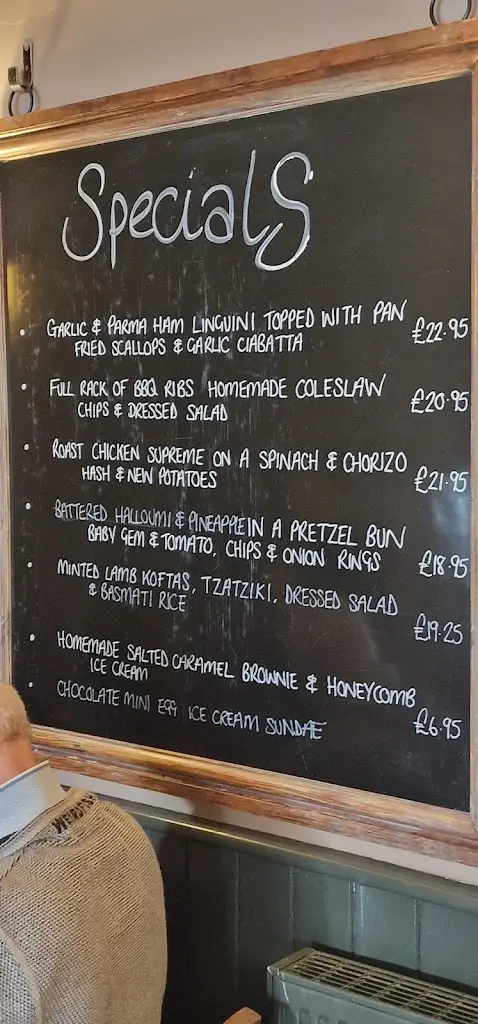 Specials
• GARLIC & PARMA HAM LINGUINI TOPPED WITH PAN
FRIED SCALLOPS & GARLIC CIABATTA £22.95
• FULL RACK OF BBQ RIBS HOMEMADE COLESLAW
CHIPS & DRESSED SALAD £20.95
• ROAST CHICKEN SUPREME ON A SPINACH & CHORIZO
HASH & NEW POTATOES £21.95
• BATTERED HALLOUMI & PINEAPPLE IN A PRETZEL BUN
BABY GEM & TOMATO, CHIPS & ONION RINGS £18.95
• MINTED LAMB KOFTAS, TZATZIKI, DRESSED SALAD
& BASMATI RICE £19.25
• HOMEMADE SALTED CARAMEL BROWNIE & HONEYCOMB
ICE CREAM
• CHOCOLATE MINI EGG ICE CREAM SUNDAE £6.95